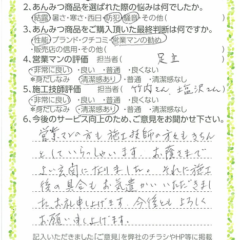 2.あんみつ商品を選ばれた際の悩みは何でしたか。
結露・暑さ・寒さ・西日・防犯・騒音・その他( )
3.あんみつ商品をご購入頂いた最終判断は何ですか?
性能・ブランド・クチコミ・営業マンの勧め
・販売店の信用・その他( )
4.営業マンの評価 担当者( 足立 )
・非常に良い・良い ・普通 ・良くない
・身だしなみ ・清潔感あり ・普通 ・清潔感なし
5.施工技師評価 担当者( 竹内さん 塩沢さん )
・非常に良い・良い ・普通 ・良くない
・身だしなみ ・清潔感あり ・普通 ・清潔感なし
6.今後のサービス向上の為、ご意見をお聞かせ下さい。
営業マンの方も施工技師の方もきちん
としていらっしゃいます。お陰さまで
よい玄関になりました。それぞれ施工
後の具合もお気遣いいただきまし
た。お礼申し上げます。今後ともよろしく
お願い申し上げます。
記入いただきました「ご意見」を弊社のチラシやHP等に掲載